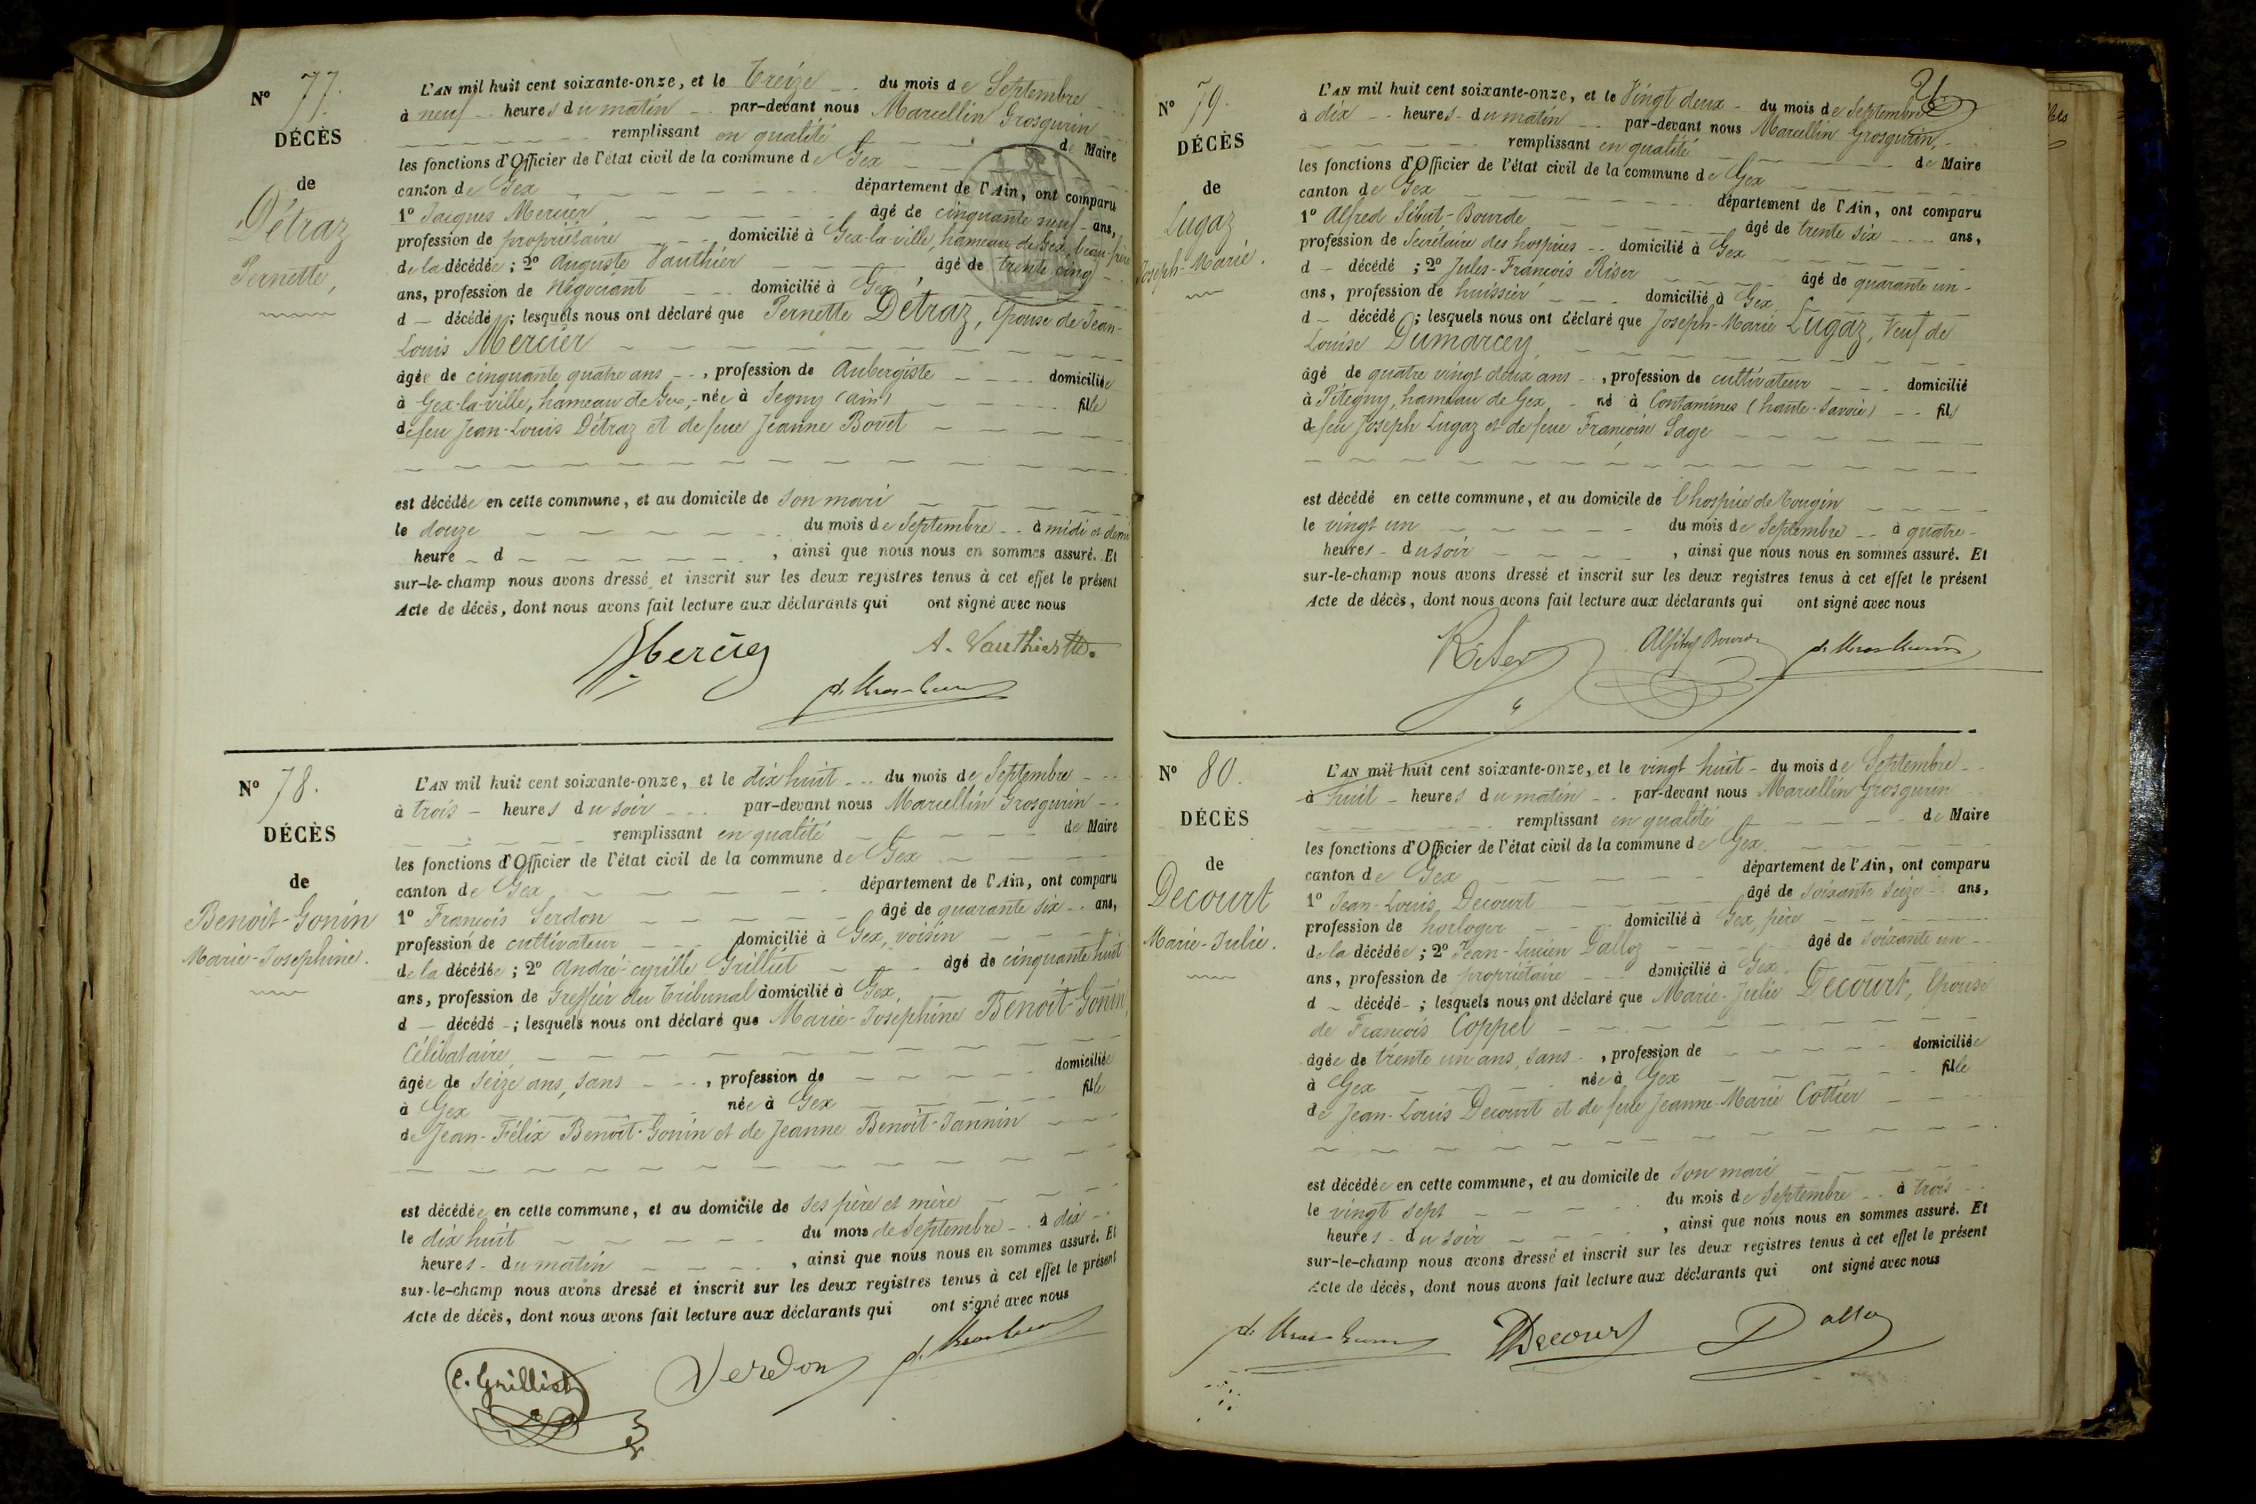 N° 77.
DÉCÈS
de
Détraz
Pernette,
L'AN mil huit cent soixante-onze, et le Treize du mois de Septembre
à neuf heures du matin par-devant nous Marcellin Grosgurin
remplissant en qualité de Maire
les fonctions d'Officier de l'état civil de la commune de Gex
canton de Gex département de l'Ain, ont comparu
1° Jacques Mercier âgé de cinquante neuf ans,
profession de propriétaire domicilié à Gex-la-ville, hameau de Gex, beau-frère
de la décédée; 2° Auguste Vauthier âgé de trente cinq
ans, profession de Négociant domicilié à Gex
d décédé; lesquels nous ont déclaré que Pernette Détraz, Epouse de Jean-
Louis Mercier
âgée de cinquante quatre ans, profession de Aubergiste domiciliée
à Gex-la-ville, hameau de Gex, née à Segny (ain) fille
de feu Jean-Louis Détraz et de feue Jeanne Bovet
est décédée en cette commune, et au domicile de son mari
le douze du mois de Septembre à midi et demi
heure d, ainsi que nous nous en sommes assuré. Et
sur-le-champ nous avons dressé et inscrit sur les deux registres tenus à cet effet le présent
Acte de décès, dont nous avons fait lecture aux déclarants qui ont signé avec nous
Mercier A. Vauthier
N° 78.
DÉCÈS
de
Benoit-Gonin
Marie-Josephine.
L'AN mil huit cent soixante-onze, et le dix huit du mois de Septembre
à trois heures du soir par-devant nous Marcellin Grosgurin
remplissant en qualité de Maire
les fonctions d'Officier de l'état civil de la commune de Gex
canton de Gex département de l'Ain, ont comparu
1° François Verdon âgé de quarante six ans,
profession de cultivateur domicilié à Gex, voisin
de la décédée; 2° André-cyrille Grilliet âgé de cinquante huit
ans, profession de Greffier du Tribunal domicilié à Gex,
d décédé; lesquels nous ont déclaré que Marie-Josephine Benoit-Gonin,
Célibataire
âgée de seize ans, sans, profession de domiciliée
à Gex née à Gex fille
de Jean-Félix Benoit-Gonin et de Jeanne Benoit-Jannin
est décédée en cette commune, et au domicile de ses père et mère
le dix huit du mois de Septembre à dix
heures du matin, ainsi que nous nous en sommes assuré. Et
sur-le-champ nous avons dressé et inscrit sur les deux registres tenus à cet effet le présent
Acte de décès, dont nous avons fait lecture aux déclarants qui ont signé avec nous
C. Grilliet Verdon
N° 79.
DÉCÈS
de
Lugaz
Joseph-Marie.
L'AN mil huit cent soixante-onze, et le Vingt deux du mois de Septembre
à dix heures du matin par-devant nous Marcellin Grosgurin,
remplissant en qualité de Maire
les fonctions d'Officier de l'état civil de la commune de Gex
canton de Gex département de l'Ain, ont comparu
1° Alfred Sibut-Bourde âgé de trente six ans,
profession de Secrétaire des hospices domicilié à Gex
d décédé; 2° Jules-François Riser âgé de quarante un
ans, profession de huissier domicilié à Gex
d décédé; lesquels nous ont déclaré que Joseph-Marie Lugaz, Veuf de
Louise Dumarcey,
âgé de quatre vingt deux ans, profession de cultivateur domicilié
à Pitegny, hameau de Gex né à Contamines (haute-Savoie) fils
de feu Joseph Lugaz et de feue Françoise Sage
est décédé en cette commune, et au domicile de l'hospice de Tougin
le vingt un du mois de Septembre à quatre
heures du soir, ainsi que nous nous en sommes assuré. Et
sur-le-champ nous avons dressé et inscrit sur les deux registres tenus à cet effet le présent
Acte de décès, dont nous avons fait lecture aux déclarants qui ont signé avec nous
Riser
N° 80.
DÉCÈS
de
Decourt
Marie-Julie.
L'AN mil huit cent soixante-onze, et le vingt huit du mois de Septembre
à huit heures du matin par-devant nous Marcellin Grosgurin
remplissant en qualité de Maire
les fonctions d'Officier de l'état civil de la commune de Gex
canton de Gex département de l'Ain, ont comparu
1° Jean-Louis Decourt âgé de soixante seize ans,
profession de horloger domicilié à Gex, père
de la décédée; 2° Jean-Lucien Dalloz âgé de soixante un
ans, profession de propriétaire domicilié à Gex
d décédé; lesquels nous ont déclaré que Marie-Julie Decourt, Epouse
de François Coppel
âgée de trente un ans, sans, profession de domiciliée
à Gex née à Gex fille
de Jean-Louis Decourt et de feue Jeanne-Marie Cottier
est décédée en cette commune, et au domicile de son mari
le vingt sept du mois de Septembre à trois
heures du soir, ainsi que nous nous en sommes assuré. Et
sur-le-champ nous avons dressé et inscrit sur les deux registres tenus à cet effet le présent
Acte de décès, dont nous avons fait lecture aux déclarants qui ont signé avec nous
Decourt Dalloz